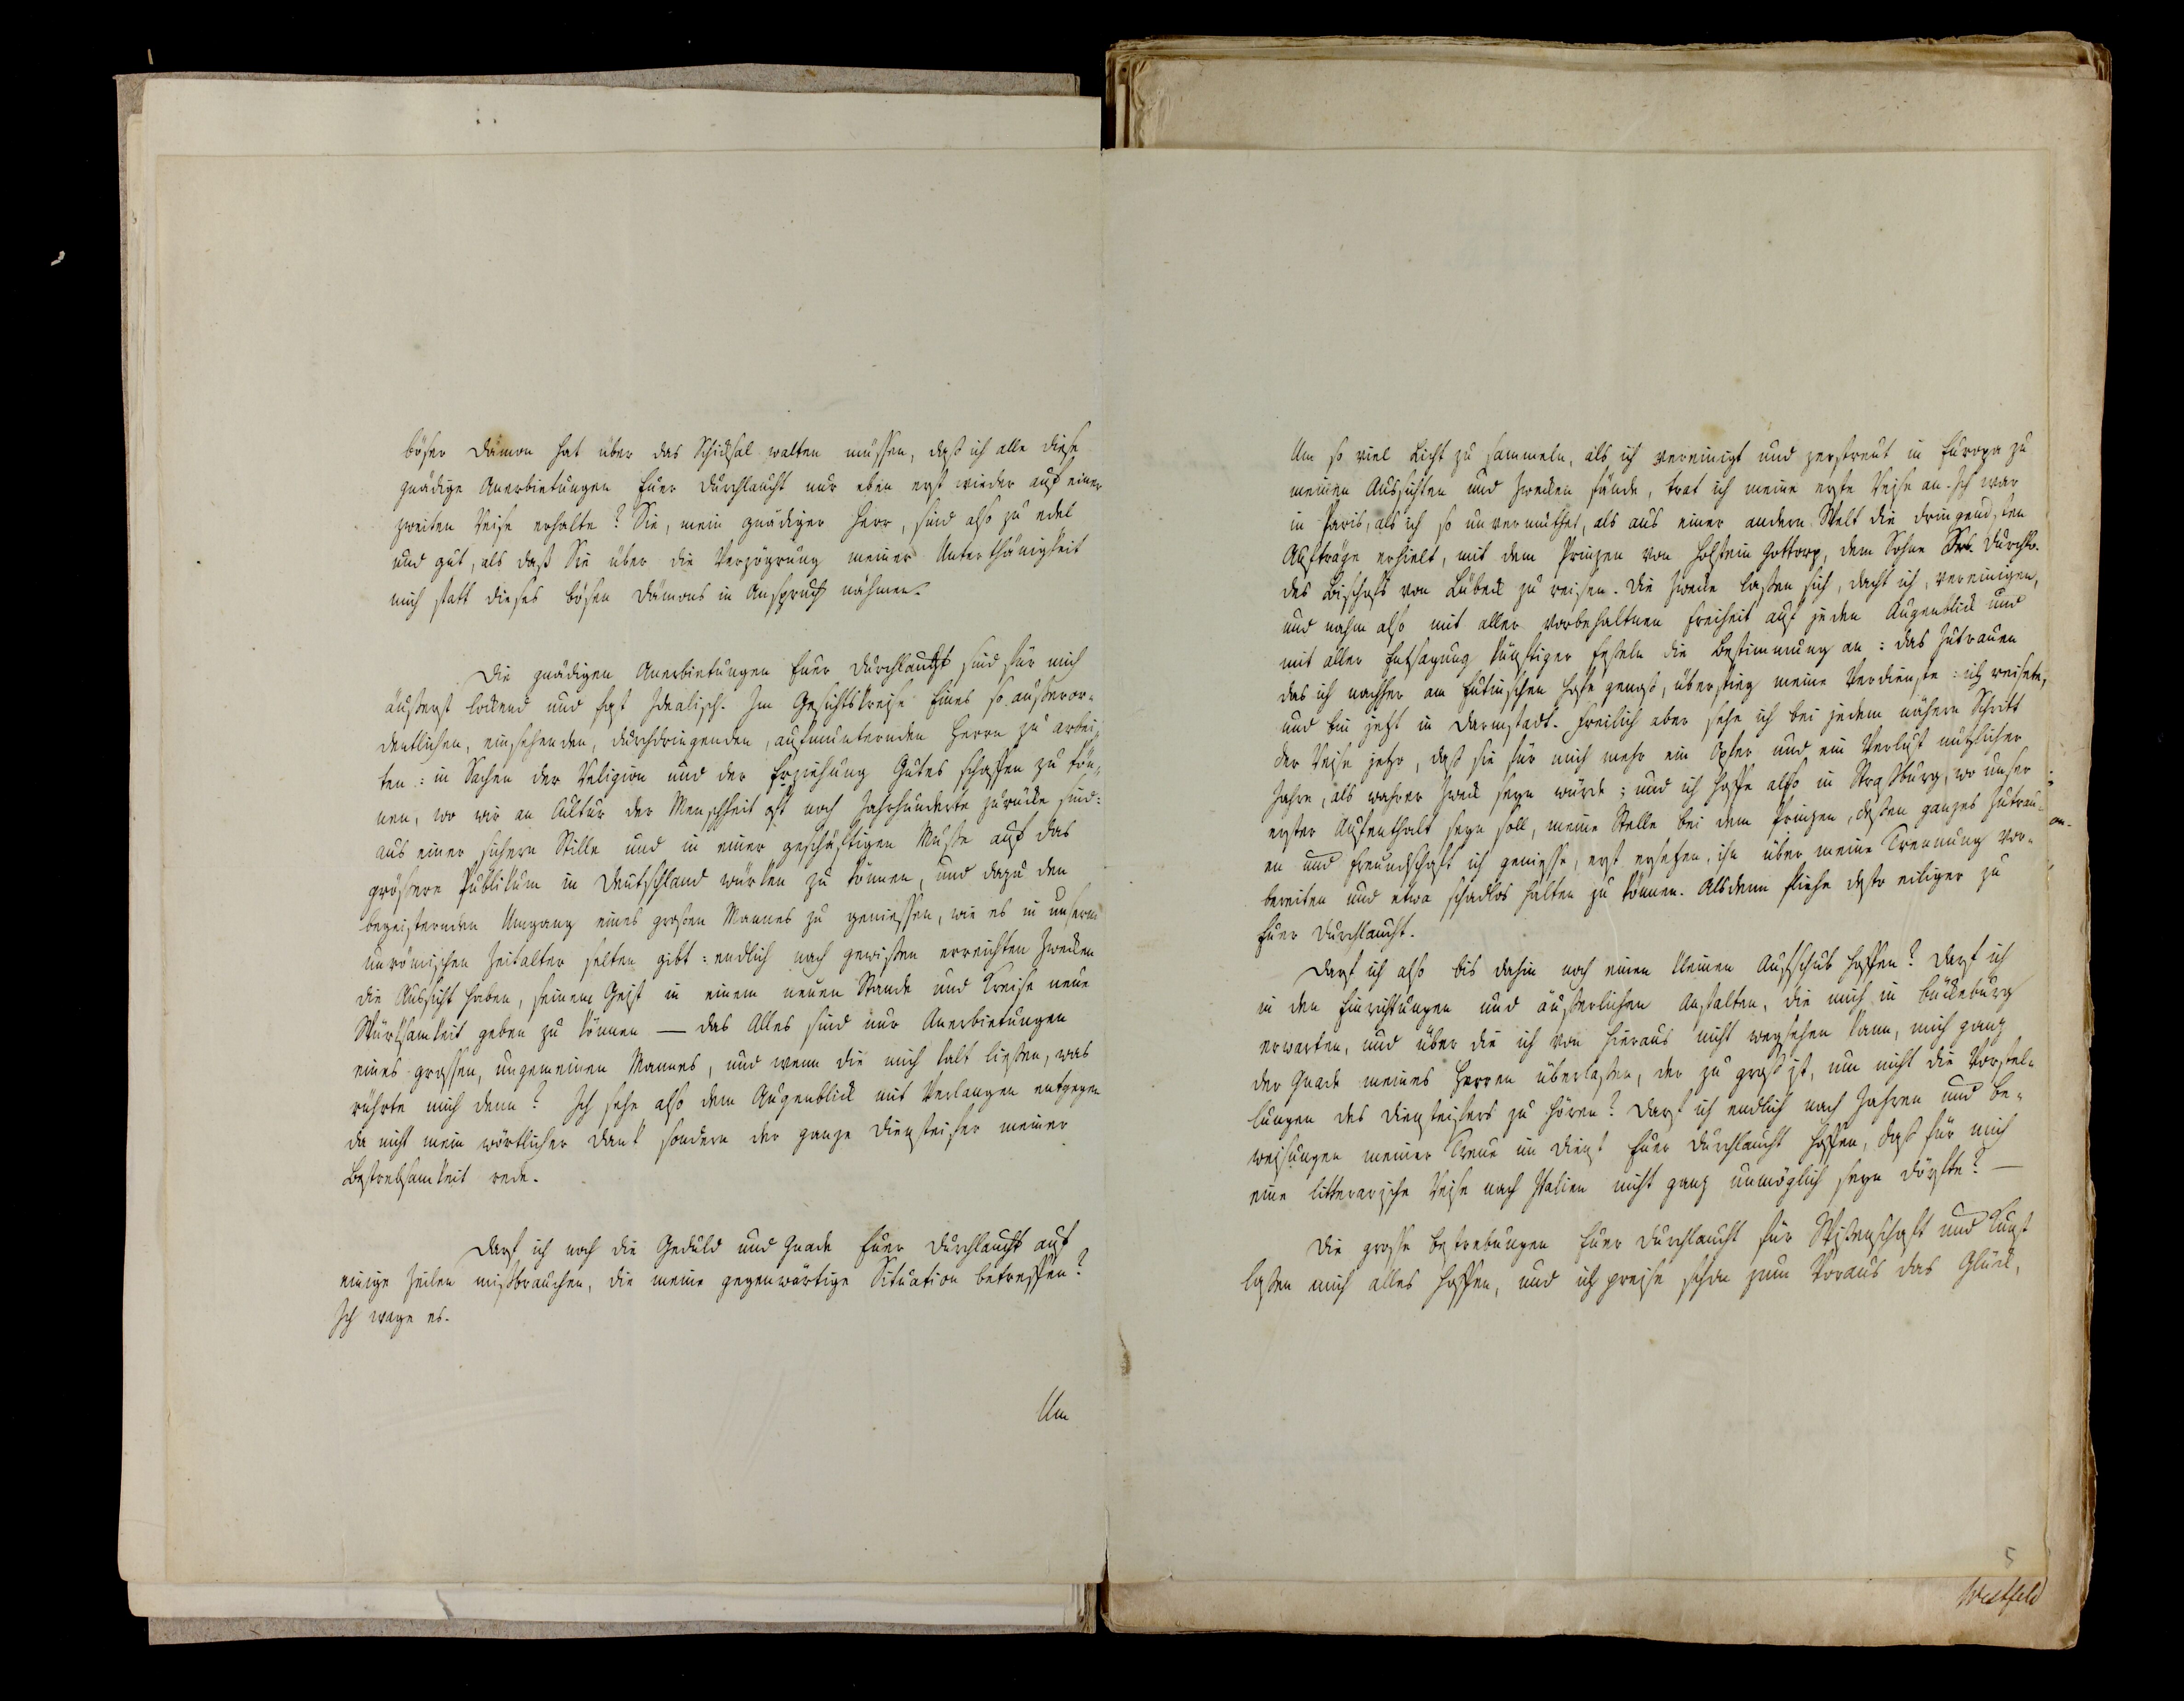 böser Dämon hat über das Schicksal walten müssen, daß ich alle diese
gnädige Anerbietungen Euer Durchlaucht nur eben erst wieder auf einer
zweiten Reise erhalte? Sie, mein gnädiger Herr, sind also zu edel
und gut, als daß Sie über die Verzögrung meiner Unterthänigkeit
mich statt dieses bösen Dämons in Anspruch nähmen.
Die gnädigen Anerbietungen Euer Durchlaucht sind für mich
äußerst lockend und fast Idealisch. Im Gesichtskreise Eines so außeror-
dentlichen, einsehenden, durchdringenden, aufmunternden Herrn zu arbei-
ten: in Sachen der Religion und der Erziehung Gutes schaffen zu kön-
nen, wo wir an Cultur der Menschheit oft noch Jahrhunderte zurücke sind:
aus einer sichern Stille und in einer geschäftigen Muße auf das
größere Publikum in Deutschland würken zu können, und dazu den
begeisternden Umgang eines großen Mannes zu geniessen, wie es in unserm
unrömischen Zeitalter selten gibt: endlich nach gewißen erreichten Zwecken
die Aussicht haben, seinem Geist in einem neuen Stande und Kreise neue
Würksamkeit geben zu können — das Alles sind nur Anerbietungen
eines grossen, ungemeinen Mannes, und wenn die mich kalt ließen, was
rührte mich denn? Ich sehe also dem Augenblick mit Verlangen entgegen
da nicht mein wörtlicher Dank sondern der ganze Diensteifer meiner
Bestrebsamkeit rede.
Darf ich noch die Geduld und Gnade Euer Durchlaucht auf
einige Zeilen mißbrauchen, die meine gegenwärtige Situation betreffen?
Ich wage es.
Um
Um so viel Licht zu sammeln, als ich vereinigt und zerstreut in Europa zu
meinen Aussichten und Zwecken fände, trat ich meine erste Reise an. Ich war
in Paris, als ich so unvermuthet, als aus einer andern Welt die dringendsten
Aufträge erhielt, mit dem Prinzen von Holstein Gottorp, dem Sohne Durchl.
des Bischofs von Lübeck zu reisen. Die Zwecke laßen sich, dacht ich, vereinigen,
und nahm also mit aller vorbehaltnen Freiheit auf jeden Augenblick und
mit aller Entsagung künftiger Feßeln die Bestimmung an: das Zutrauen
das ich nachher am Eutinschen Hofe genoß, überstieg meine Verdienste: ich reisete,
und bin jetzt in Darmstadt. Freilich aber sehe ich bei jedem nähern Schritt
der Reise jetzo, daß sie für mich mehr ein Opfer und ein Verlust nutzlicher
Jahre, als wahrer Zweck seyn würde; und ich hoffe also in Straßburg, wo unser
erster Aufenthalt seyn soll, meine Stelle bei dem Prinzen, deßen ganzes Zutrau-
en und Freundschaft ich geniesse, erst ersetzen, ihn über meine Trennung vor-
bereiten und etwa schadlos halten zu können. Alsdenn fliehe desto eiliger zu
Euer Durchlaucht.
Darf ich also bis dahin noch einen kleinen Aufschub hoffen? Darf ich
in den Einrichtungen und äußerlichen Anstalten, die mich in Bückeburg
erwarten, und über die ich von hieraus nicht wegsehen kann, mich ganz
der Gnade meines Herren überlaßen, der zu groß ist, um nicht die Vorstel-
lungen des Diensteifers zu hören? Darf ich endlich nach Jahren und Be-
weisungen meiner Treue im Dienst Euer Durchlaucht hoffen, daß für mich
eine litterarische Reise nach Italien nicht ganz unmöglich seyn dörfte? —
Die große Bestrebungen Euer Durchlaucht für Wißenschaft und Kunst
laßen mich alles hoffen, und ich preise schon zum Voraus das Glück,
5
Westfeld